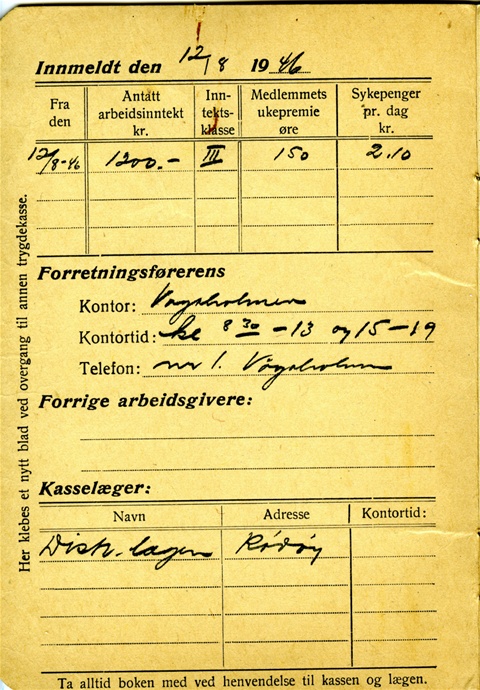 Innmeldt den 12/8 1946
Fra den
Antatt arbeidsinntekt kr.
Inn-tekts-klasse
Medlemmets ukepremie øre
Sykepenger pr. dag kr.
12/8-46 1200.- III 150 2.10
Forretningsførerens
Kontor: Vågaholmen
Kontortid: kl 8 30 -13 og 15-19
Telefon: nr 1. Vågaholmen
Forrige arbeidsgivere:
Kasselæger:
Navn Adresse Kontortid:
Distr. lægen Rødøy
Ta alltid boken med ved henvendelse til kassen og lægen.
Her klebes et nytt blad ved overgang til annen trygdekasse.